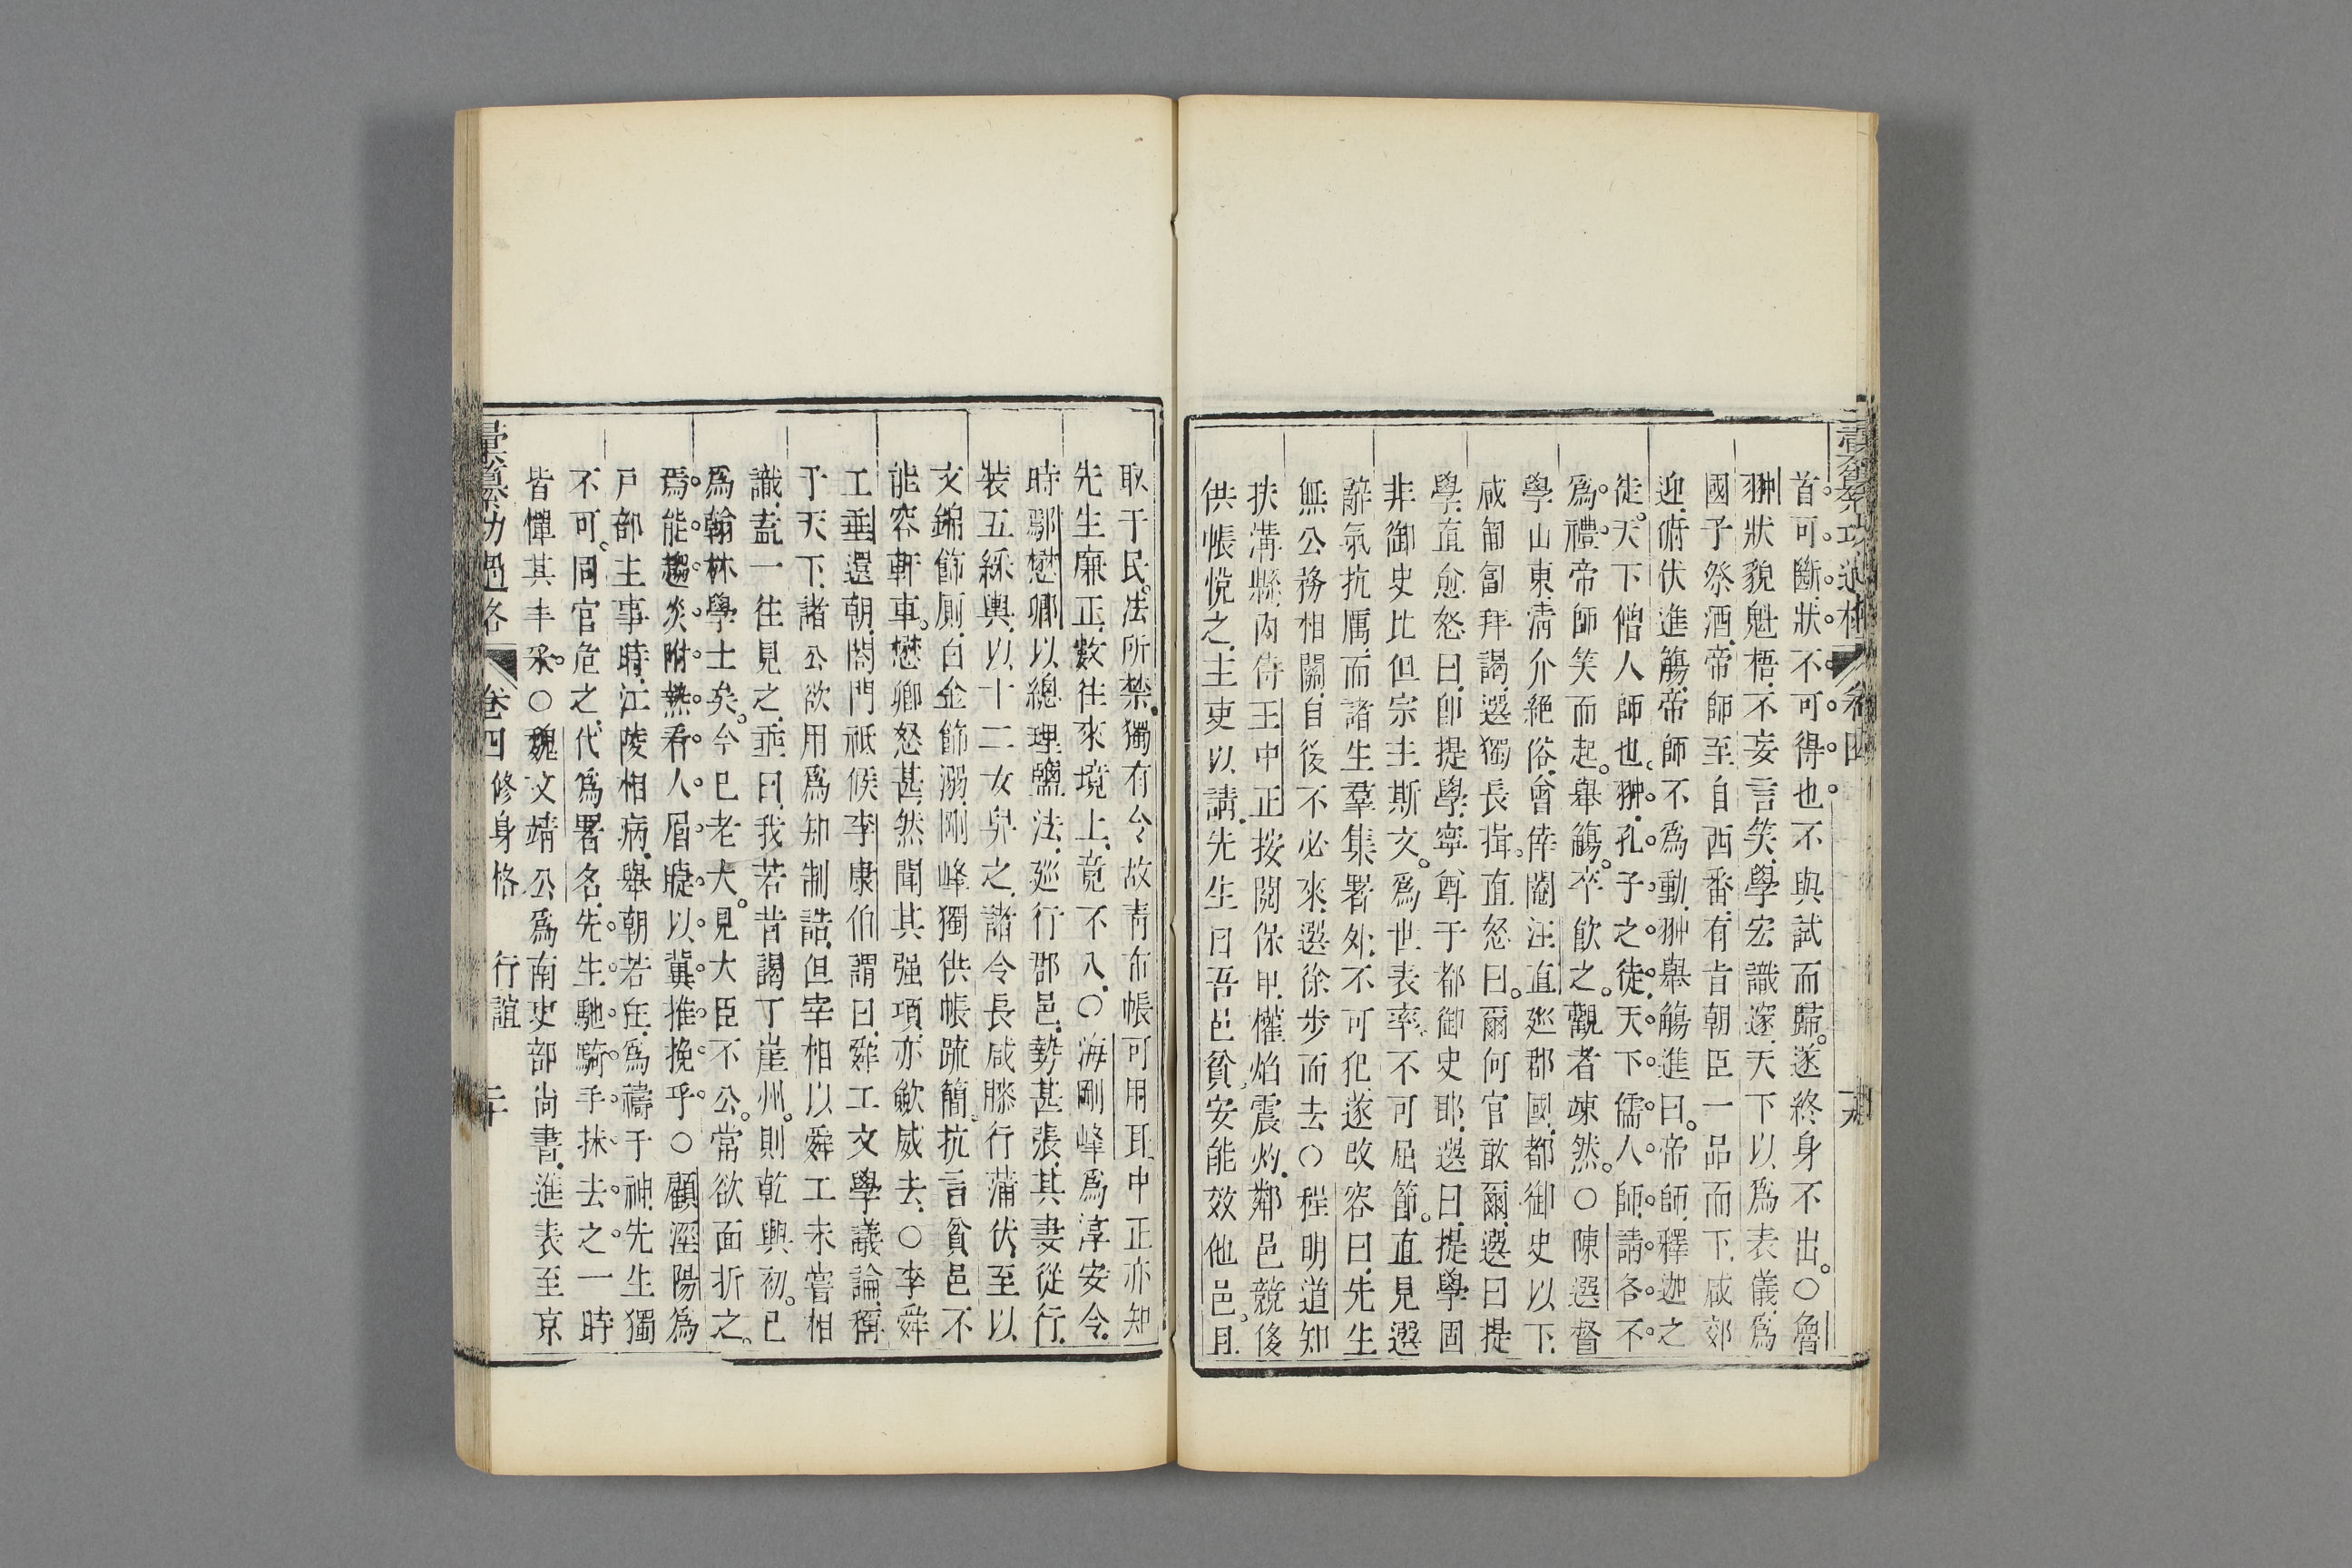 彙纂功過格 卷四 十九
首可斷狀不可得也不與試而歸遂終身不出○魯
翀狀貌魁梧不妄言笑學宏識邃天下以爲表儀爲
國子祭酒帝師至自西番有旨朝臣一品而下咸郊
迎俯伏進觴帝師不爲動翀舉觴進曰帝師釋迦之
徒天下僧人師也翀孔子之徒天下儒人師請各不
爲禮帝師笑而起舉觴卒飲之觀者竦然○陳選督
學山東淸介絕俗會倖閹汪直廵郡國都御史以下
咸匍匐拜謁選獨長揖直怒曰爾何官敢爾選曰提
學直愈怒曰卽提學寧尊于都御史耶選曰提學固
非御史比但宗主斯文爲世表率不可屈節直見選
辭氣抗厲而諸生羣集署外不可犯遂改容曰先生
無公務相關自後不必來選徐步而去○程明道知
扶溝縣內侍王中正按閱保甲權焰震灼鄰邑競後
供帳悅之主吏以請先生曰吾邑貧安能效他邑且
取于民法所禁獨有令故靑布帳可用耳中正亦知
先生廉正數往來境上竟不入○海剛峰爲淳安令
時鄢懋卿以總理鹽法廵行郡邑勢甚張其妻從行
裝五綵輿以十二女舁之諸令長咸膝行蒲伏至以
文錦飾厠白金飾溺剛峰獨供帳疏簡抗言貧邑不
能容軒車懋卿怒甚然聞其强項亦斂威去○李舜
工垂還朝閤門祗候李康伯謂曰舜工文學議論稱
于天下諸公欲用爲知制誥但宰相以舜工未嘗相
識盍一往見之垂曰我若昔謁丁崖州則乾興初已
爲翰林學士矣今已老大見大臣不公常欲面折之
焉能趨炎附熱看人眉睫以冀推挽乎○顧涇陽爲
戶部主事時江陵相病舉朝若狂爲禱于神先生獨
不可同官危之代爲署名先生馳騎手抹去之一時
皆憚其丰采○魏文靖公爲南吏部尚書進表至京
彙纂功過格 卷四 修身格 行誼 二十